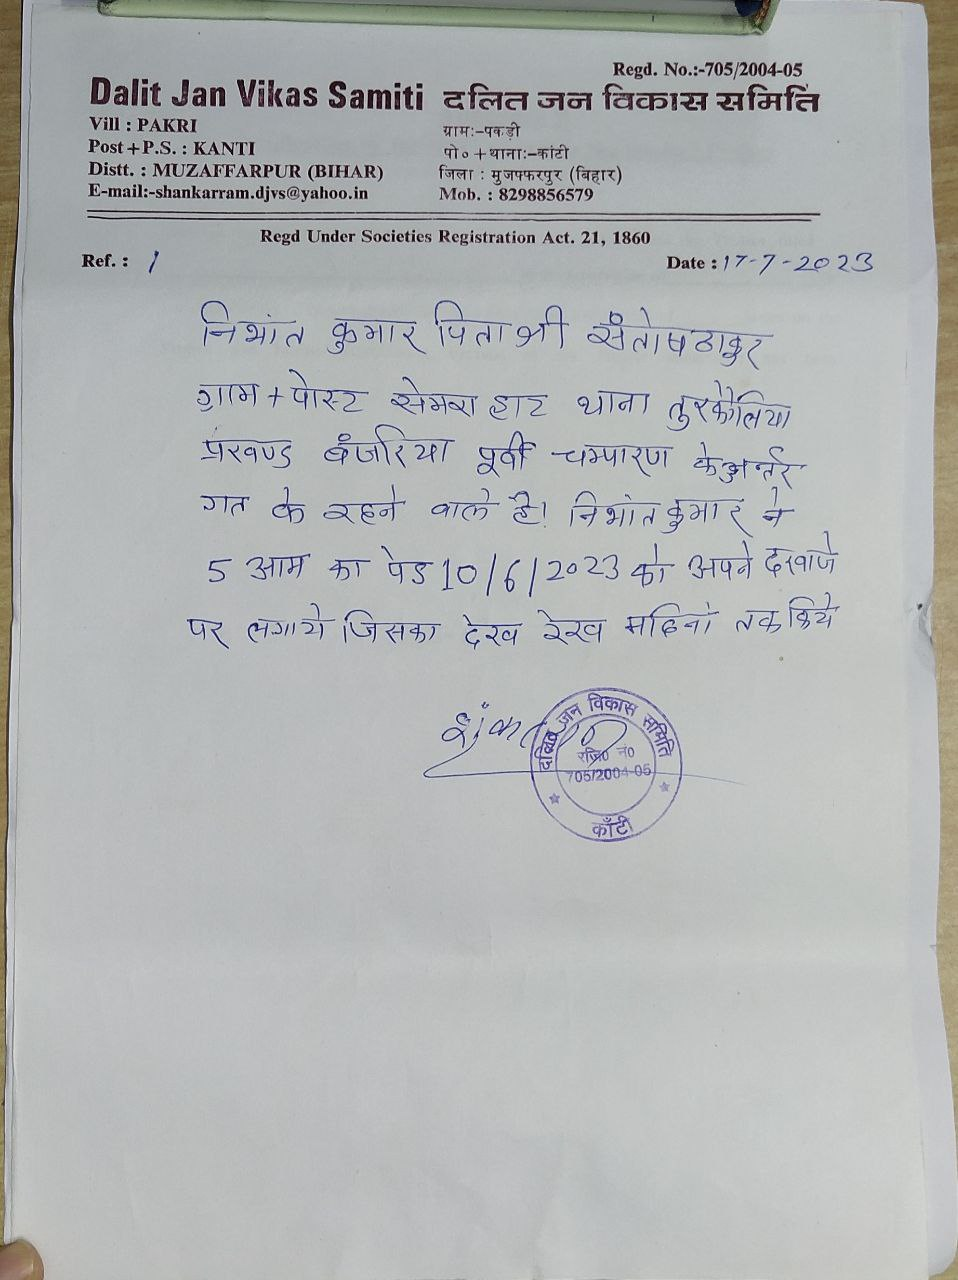 Regd. No.:-705/2004-05
Dalit Jan Vikas Samiti दलित जन विकास समिति
Vill : PAKRI
Post+P.S. : KANTI
Distt. : MUZAFFARPUR (BIHAR)
E-mail:-shankarram.djvs@yahoo.in
ग्रामः-पकड़ी
पो०+थानाः-कांटी
जिला : मुजफ्फरपुर (बिहार)
Mob. : 8298856579
Regd Under Societies Registration Act. 21, 1860
Ref. : 1
Date : 17-7-2023
निभांत कुमार पिता श्री संतोष ठाकुर
ग्राम + पोस्ट सेमरा हाट थाना तुरकौलिया
प्रखण्ड बंजरिया पूर्वी चम्पारण के अर्न्तर
गत के रहने वाले है। निभांत कुमार ने
5 आम का पेड 10/6/2023 को अपने दरवाजे
पर लगाये जिसका देख रेख महिनो तक किये
दलित जन विकास समिति
रजि० नं०
705/2004-05
काँटी